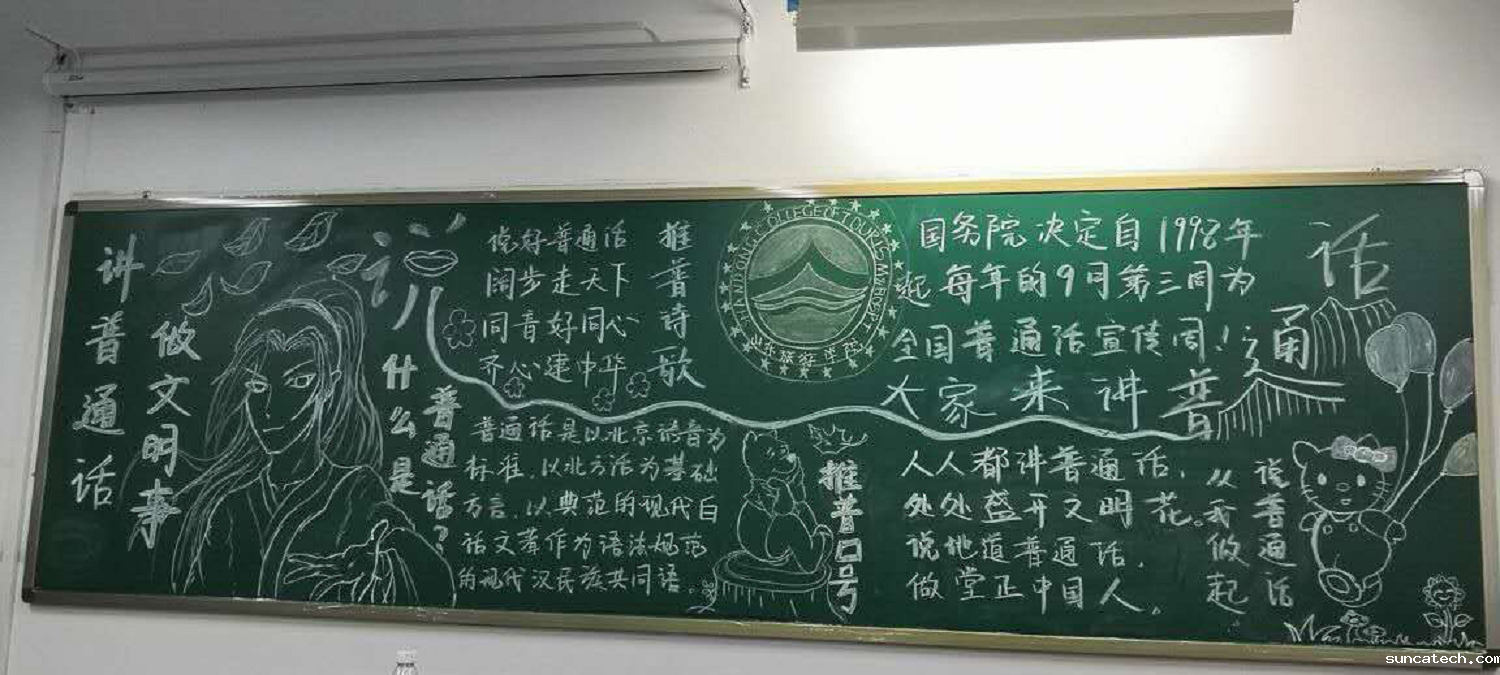 讲普通话
做文明事
说
什么是
普通话?
说好普通话
阔步走天下
同音好同心
齐心建中华
推普诗歌
普通话是以北京语音为
标准,以北方话为基础
方言,以典范的现代白
话文著作为语法规范
的现代汉民族共同语。
推普口号
国务院决定自1998年
起每年的9月第三周为
全国普通话宣传周!
大家来讲普
通
话
人人都讲普通话,
处处盛开文明花。
说地道普通话,
做堂正中国人。
说普通话
从我做起
suncatech.com